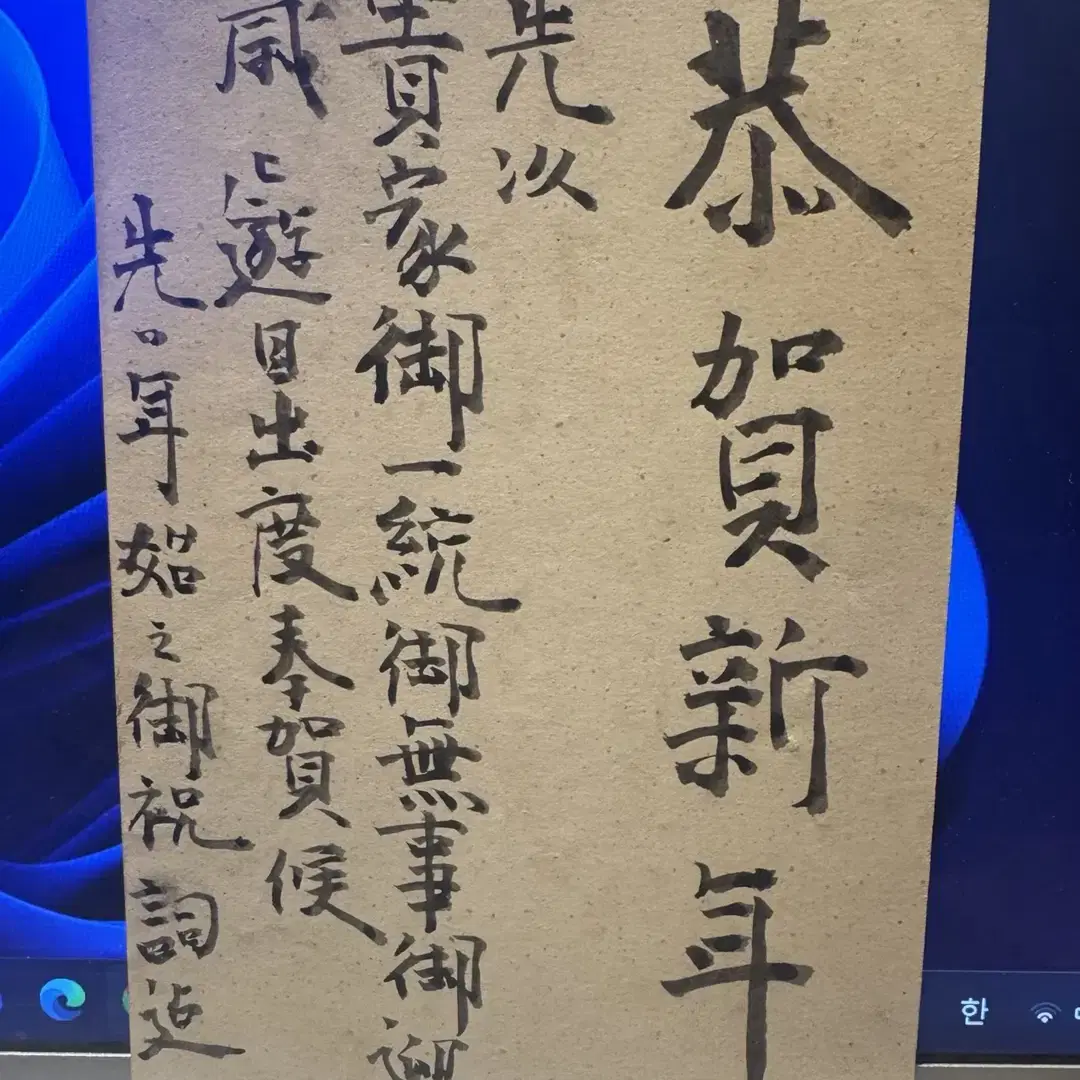 恭賀新年
先以
貴家御一統御無事御迎
歳被遊目出度奉賀候
先ハ年始之御祝詞迄
한